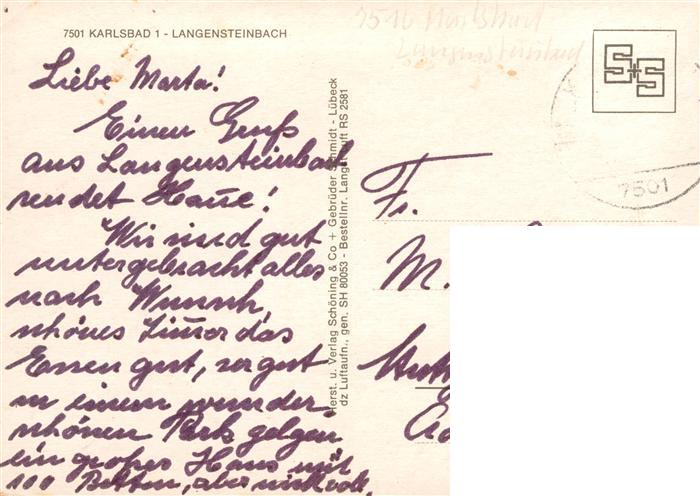 7501 KARLSBAD 1 - LANGENSTEINBACH
7516 Karlsbad
Langensteinbad
S+S
7501
Liebe Marta!
Einen Gruß
aus Langensteinbach
sendet Hane!
Wir sind gut
untergebracht alles
nach Wunsch,
schönes Zimer das
Essen gut, sogut
in einem wunder
schönen Park gelgen
ein großes Haus mit
100 Betten, aber nicht voll,
Herst. u. Verlag Schöning & Co + Gebrüder Schmidt - Lübeck
dz Luftaufn., gen. SH 80053 - Bestellnr. Lang RS 2581
Fr.
M.